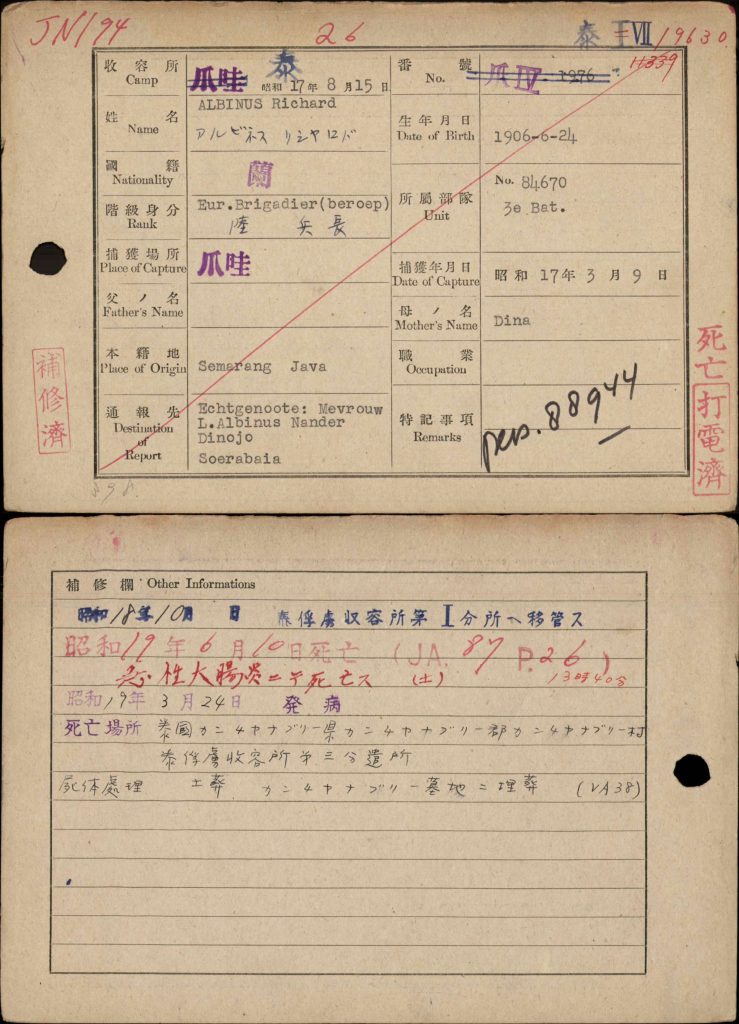 JN194
26
泰 VII 19630
收容所
Camp
爪哇 泰
昭和 17年 8月 15日
番號
No.
爪 IV. 1976
11339
姓名
Name
ALBINUS Richard
アルビネス リシャロド
生年月日
Date of Birth
1906-6-24
國籍
Nationality
蘭
階級身分
Rank
Eur.Brigadier(beroep)
陸 兵長
所屬部隊
Unit
No. 84670
3e Bat.
捕獲場所
Place of Capture
爪哇
捕獲年月日
Date of Capture
昭和 17年 3月 9日
父ノ名
Father's Name
母ノ名
Mother's Name
Dina
本籍地
Place of Origin
Semarang Java
職業
Occupation
通報先
Destination
of
Report
Echtgenoote: Mevrouw
L.Albinus Nander
Dinojo
Soerabaia
特記事項
Remarks
pers. 88944
補修濟
死亡打電濟
補修欄 Other Informations
昭和18年10月 日 泰俘虜収容所第I分所ヘ移管ス
昭和19年6月10日死亡 (JA. 87 P.26)
急性大腸炎ニテ死亡ス (土) 13時40分
昭和19年3月24日 発病
死亡場所 泰国カンチヤナブリー県カンチヤナブリー郡カンチヤナブリー村
泰俘虜収容所第三分遣所
屍体處理 土葬 カンチヤナブリー墓地ニ埋葬 (VA38)